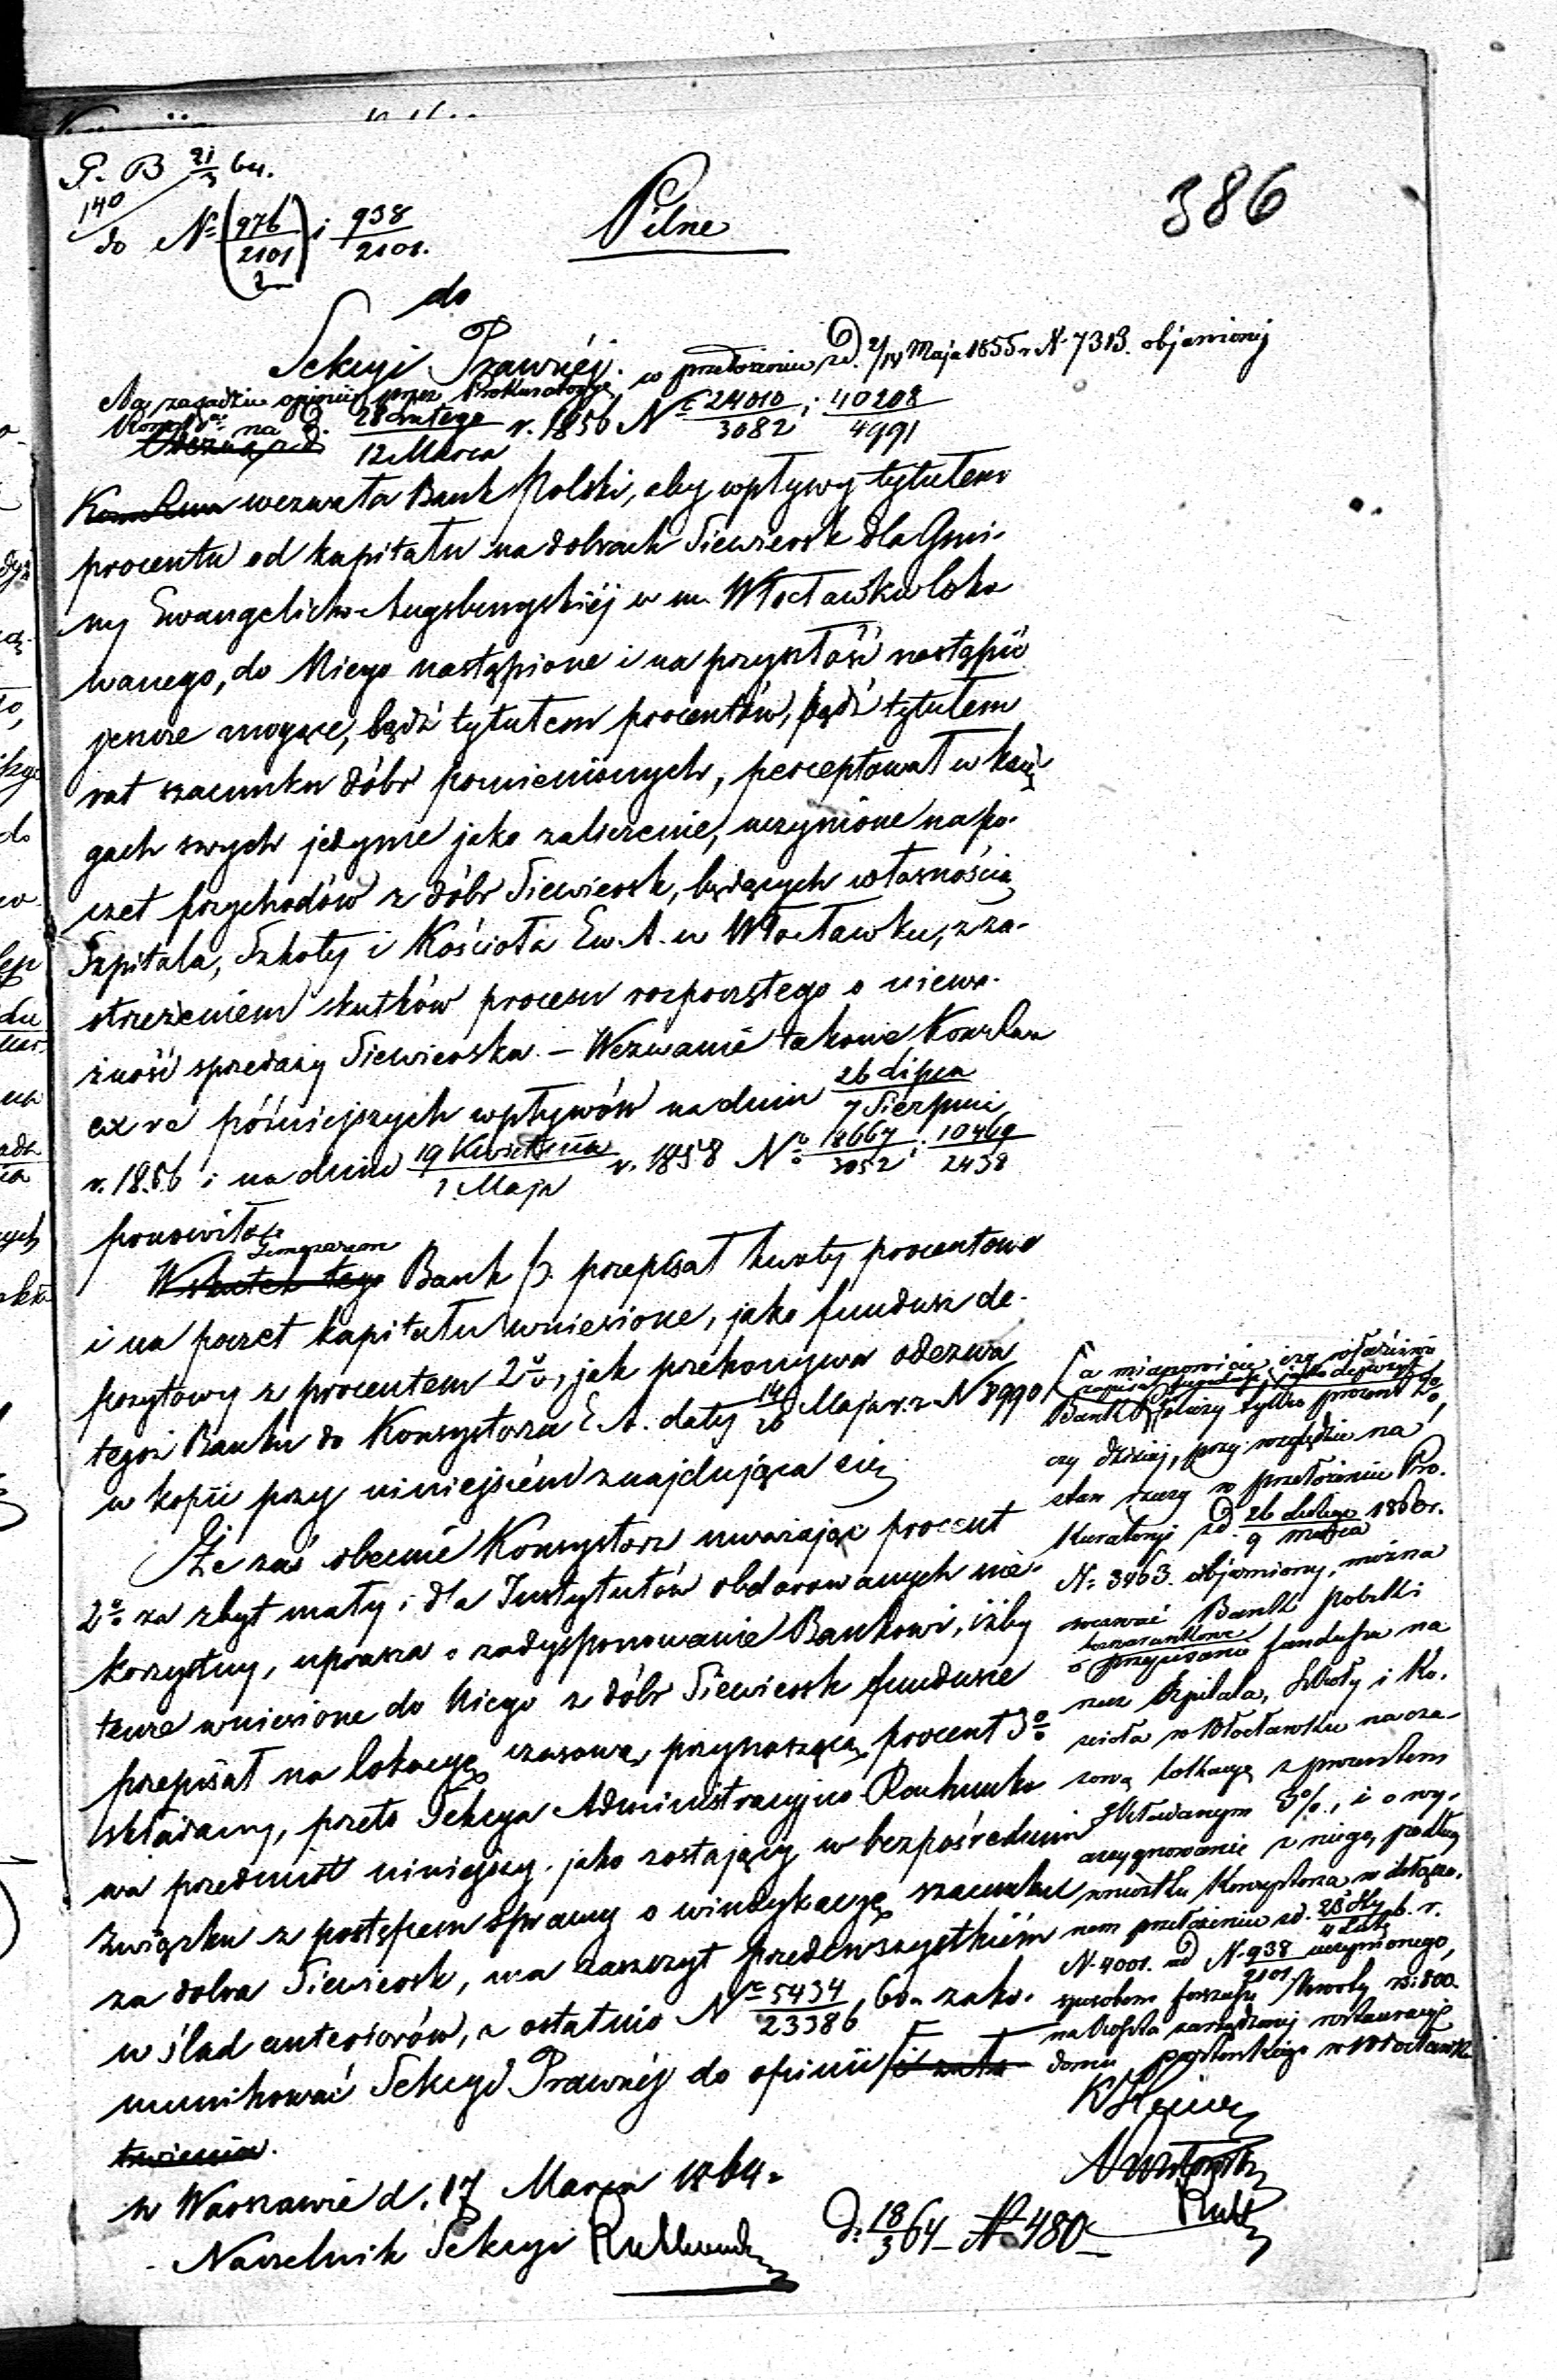 P. B 21/3 64.
140
do № (976/2101) i 938/2101.
2
Pilne
386
do
Sekcyi Prawnéj.
Na zasadzie opinii przez Prokuratoryę w przełożeniu z d. 2/14 Maja 1855 r. N. 7313. objawionej
na d. 28 Lutego/12 Marca r. 1856 № 24010/3082 i 40208/4991
wezwała Bank Polski, aby wpływy tytułem
procentu od kapitału na dobrach Siewiersk dla Gmi-
ny Ewangelicko-Augsburgskiéj w m. Włocławku loko
wanego, do Niego nastąpione i na przyszłość nastąpić
jeszcze mogące, bądź tytułem procentów, bądź tytułem
rat szacunku dóbr pomienionych, perceptował w księ
gach swych jedynie jako zaliczenie, uczynione na po-
czet przychodów z dóbr Siewiersk, będących własnością
Szpitala, Szkoły i Kościoła Ew. A. w Włocławku, z za-
strzeżeniem skutków procesu rozpoczętego o niewa-
żność sprzedaży Siewierska. – Wezwanie takowe
ex re późniejszych wpływów na dniu 26 Lipca/7 Sierpnia
r. 1856 i na dniu 19 Kwietnia/1 Maja r. 1858 № 18667/3052 i 10469/2438
ponowiła.
Wskutek tego Bank P. przepisał kwoty procentowe
i na poczet kapitału wniesione, jako fundusz de-
pozytowy z procentem 2%, jak przekonywa odezwa
tegoż Banku do Konsystorza E. A. daty 14/26 Maja r. z. N 8990
w kopii przy niniejszém znajdująca się
Że zaś obecnie Konsystorz uważając procent
2% za zbyt mały i dla Instytutów obdarowanych nie-
korzystny, uprasza o zadysponowanie Bankowi, iżby
tenże wniesione do Niego z dóbr Siewiersk fundusze
przepisał na lokacyę czasową, przynoszącą procent 3%
składany, przeto Sekcya Administracyjno Rachunko
wa przedmiot niniejszy jako zostający w bezpośrednim
związku z postępem sprawy o windykacyę szacunku
za dobra Siewiersk, ma zaszczyt przedewszystkiém
w ślad anteriorów, a ostatnio № 5434/23386, 60 r. zako-
munikować Sekcyi Prawnéj do opinii
twienia.
w Warszawie d. 17 Marca 1864.
Naczelnik Sekcyi
d. 18/3 64 № 480
a mianowicie, czy właściwie
Bank należy tylko procent 2%,
czy dzisiaj, przy względzie na
stan rzeczy w przełożeniu Pro-
kuratoryi z d. 26 Lutego/9 Marca 1860 r.
N: 3463. objawiony, można
wezwać Bank Polski
o przepisanie funduszu na
rzecz Szpitala, Szkoły i Ko-
ścioła w Włocławku na cza-
sową lokacyę z procentem
składanym 3%, i o wy-
asygnowanie z niego, podług
wniosku Konsystorza w dołączo-
nem przełożeniu z d. 23 Sty/4 Lut b. r.
N. 4001. ad N. 938/2101 uczynionego,
sposobem forszusu kwoty rs: 800.
na koszta zarządzonej restauracyi
domu pastorskiego w Włocławku